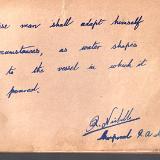 ise man shall adapt himself
cumstances, as water shapes
to the vessel in which it
poured.